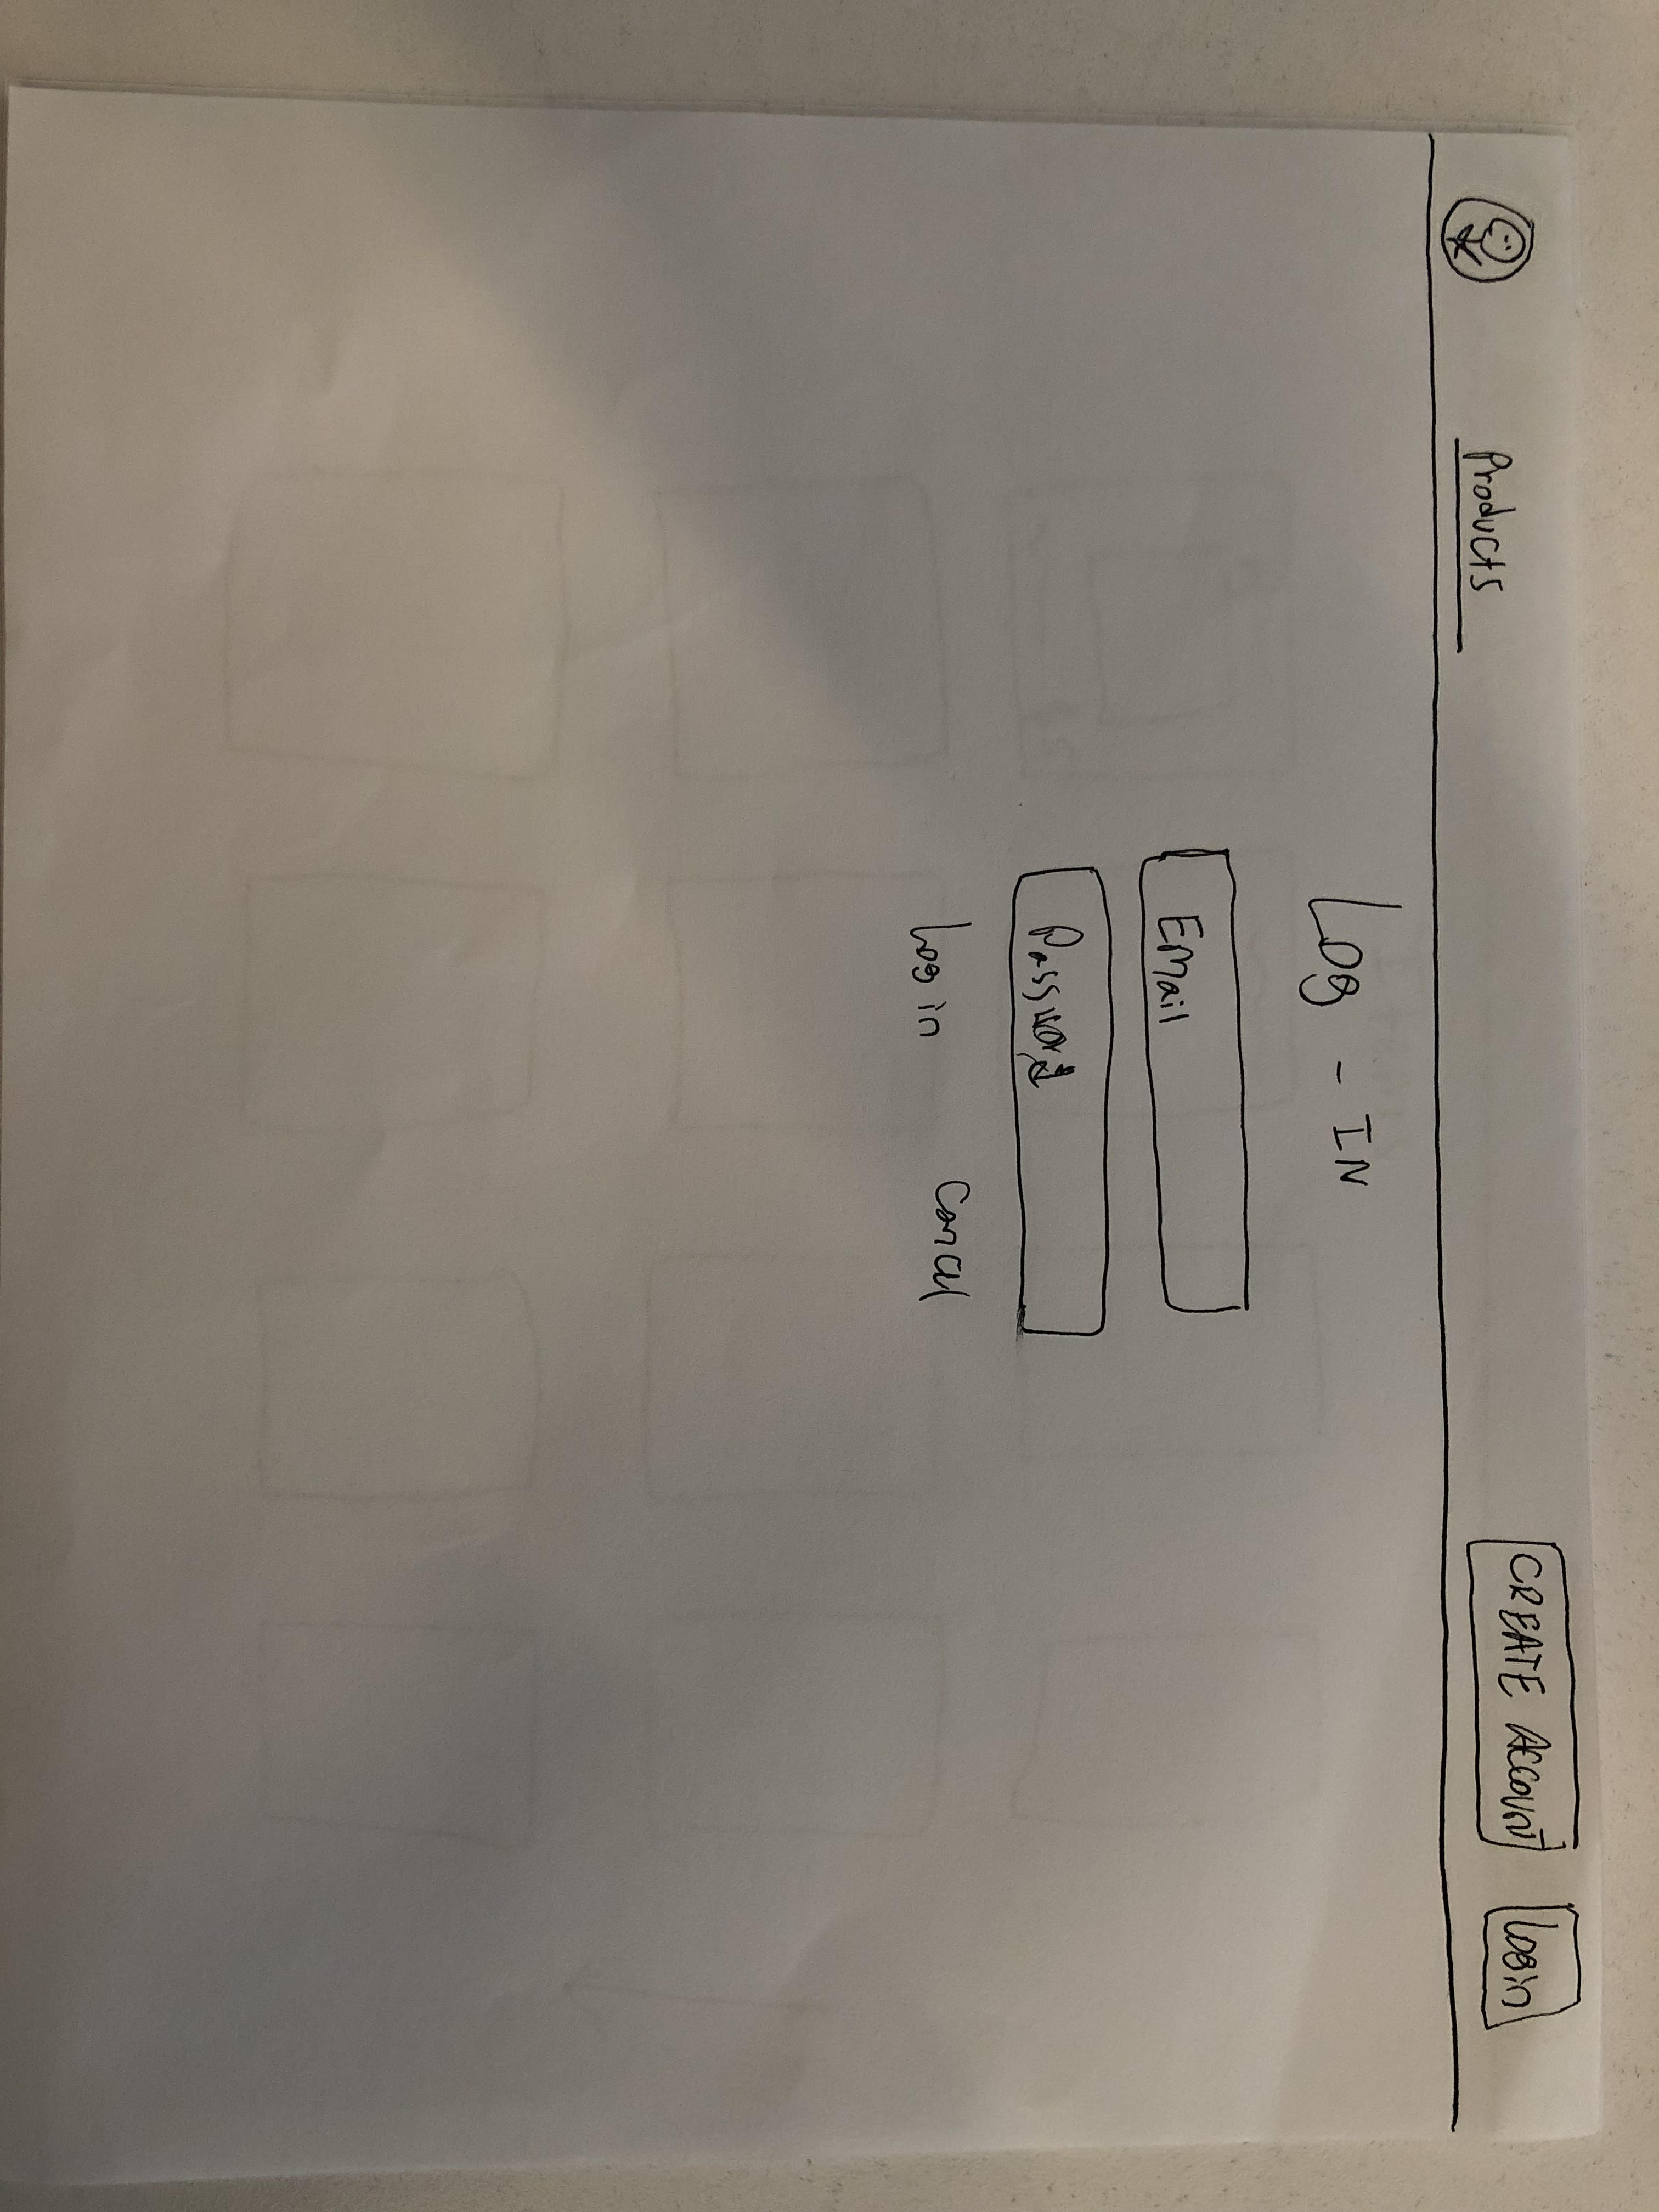 Products
CREATE ACCOUNT
Login
Log - IN
Email
Password
Log in
Cancel